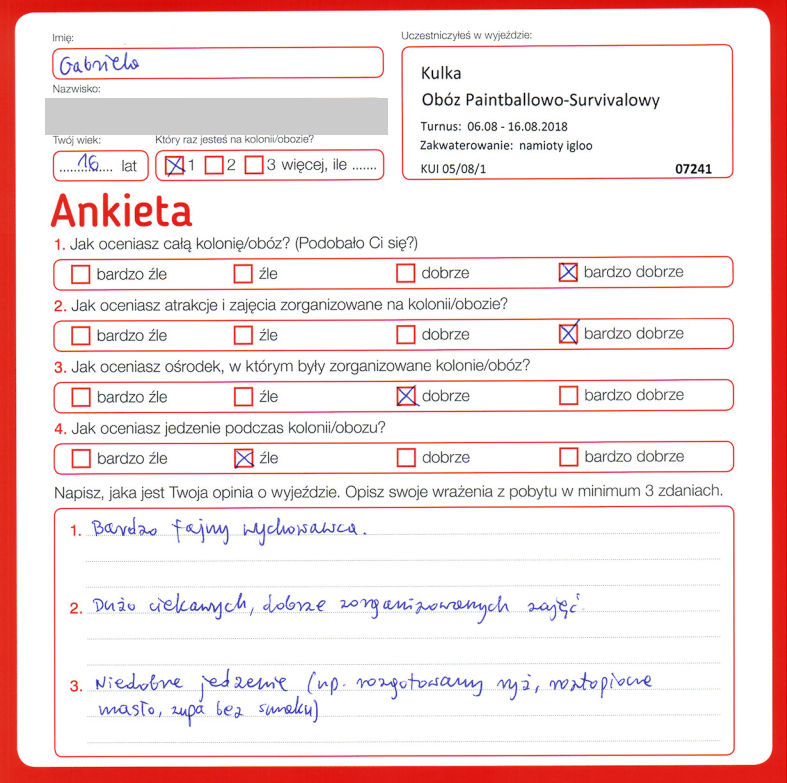 Imię:
Uczestniczyłeś w wyjeździe:
Gabriela
Kulka
Nazwisko:
Obóz Paintballowo-Survivalowy
Turnus: 06.08 - 16.08.2018
Zakwaterowanie: namioty igloo
KUI 05/08/1 07241
Twój wiek: Który raz jesteś na kolonii/obozie?
16 lat 1 2 3 więcej, ile .......
Ankieta
1. Jak oceniasz całą kolonię/obóz? (Podobało Ci się?)
bardzo źle źle dobrze bardzo dobrze
2. Jak oceniasz atrakcje i zajęcia zorganizowane na kolonii/obozie?
bardzo źle źle dobrze bardzo dobrze
3. Jak oceniasz ośrodek, w którym były zorganizowane kolonie/obóz?
bardzo źle źle dobrze bardzo dobrze
4. Jak oceniasz jedzenie podczas kolonii/obozu?
bardzo źle źle dobrze bardzo dobrze
Napisz, jaka jest Twoja opinia o wyjeździe. Opisz swoje wrażenia z pobytu w minimum 3 zdaniach.
1. Bardzo fajny wychowawca.
2. Dużo ciekawych, dobrze zorganizowanych zajęć.
3. Niedobre jedzenie (np. rozgotowany ryż, roztopione
masło, zupa bez smaku)